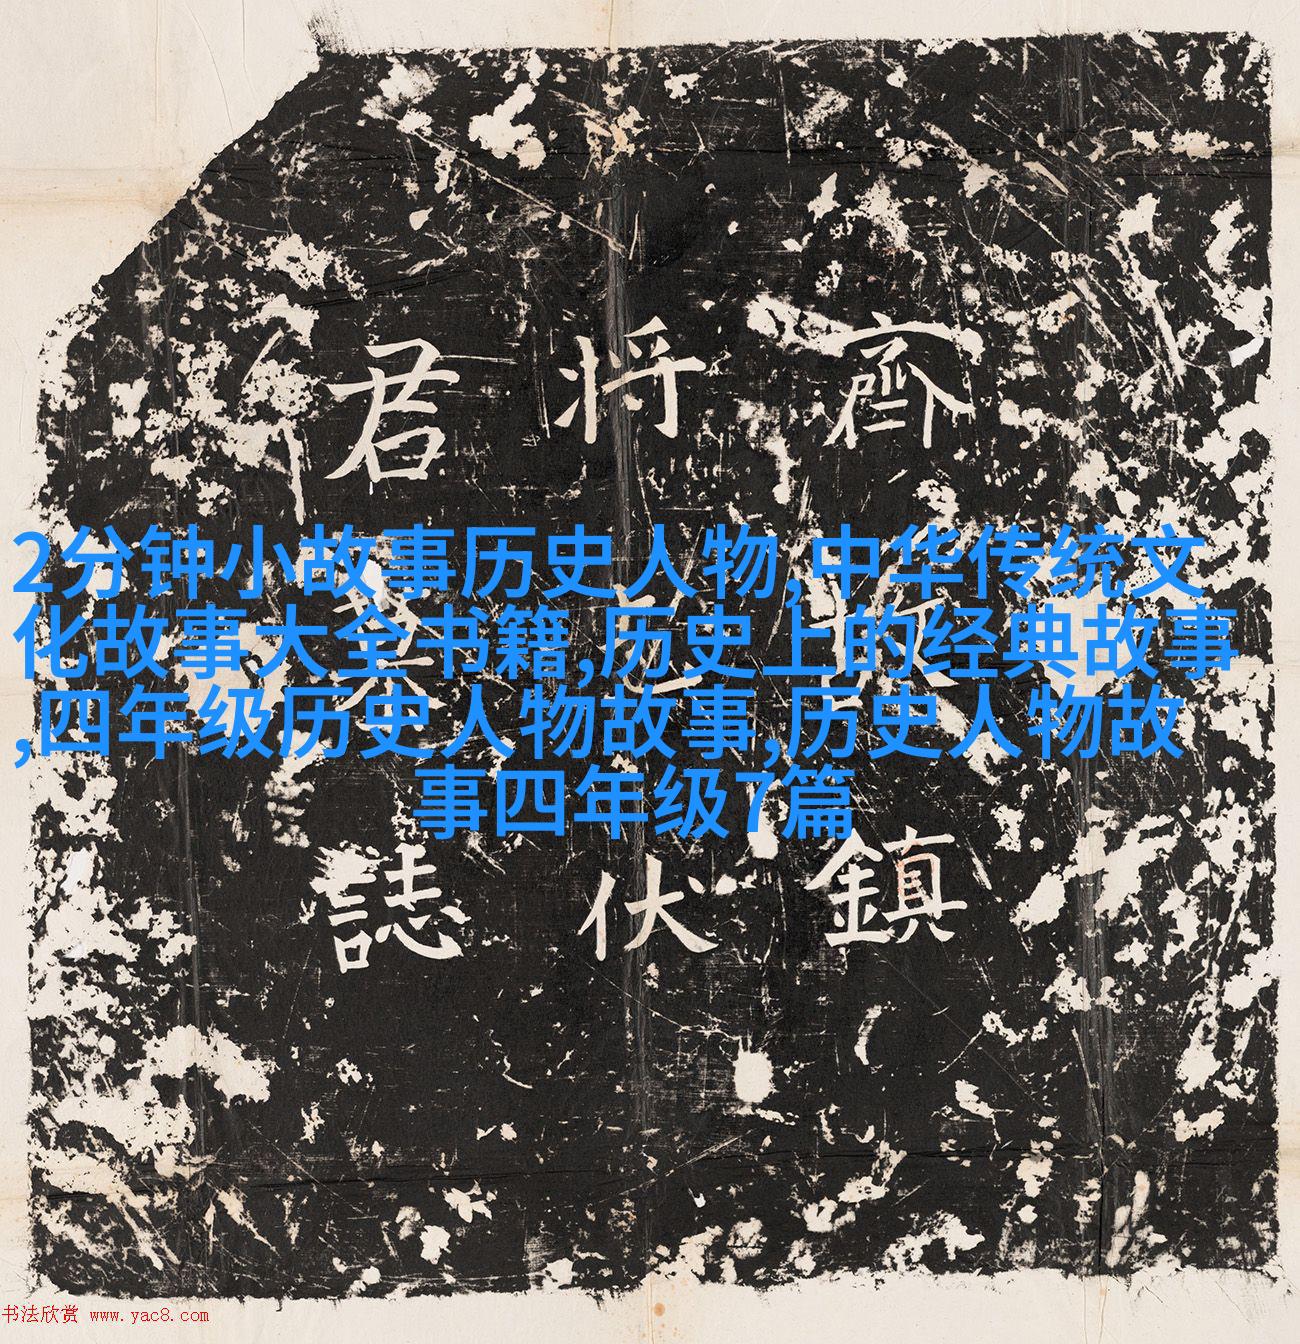 齊 将 君
2分钟小故事历史人物,中华传统文
化故事大全书籍,历史上的经典故事
,四年级历史人物故事,历史人物故
事四年级7篇
鎮 伏 誌
书法欣赏 www.yac8.com